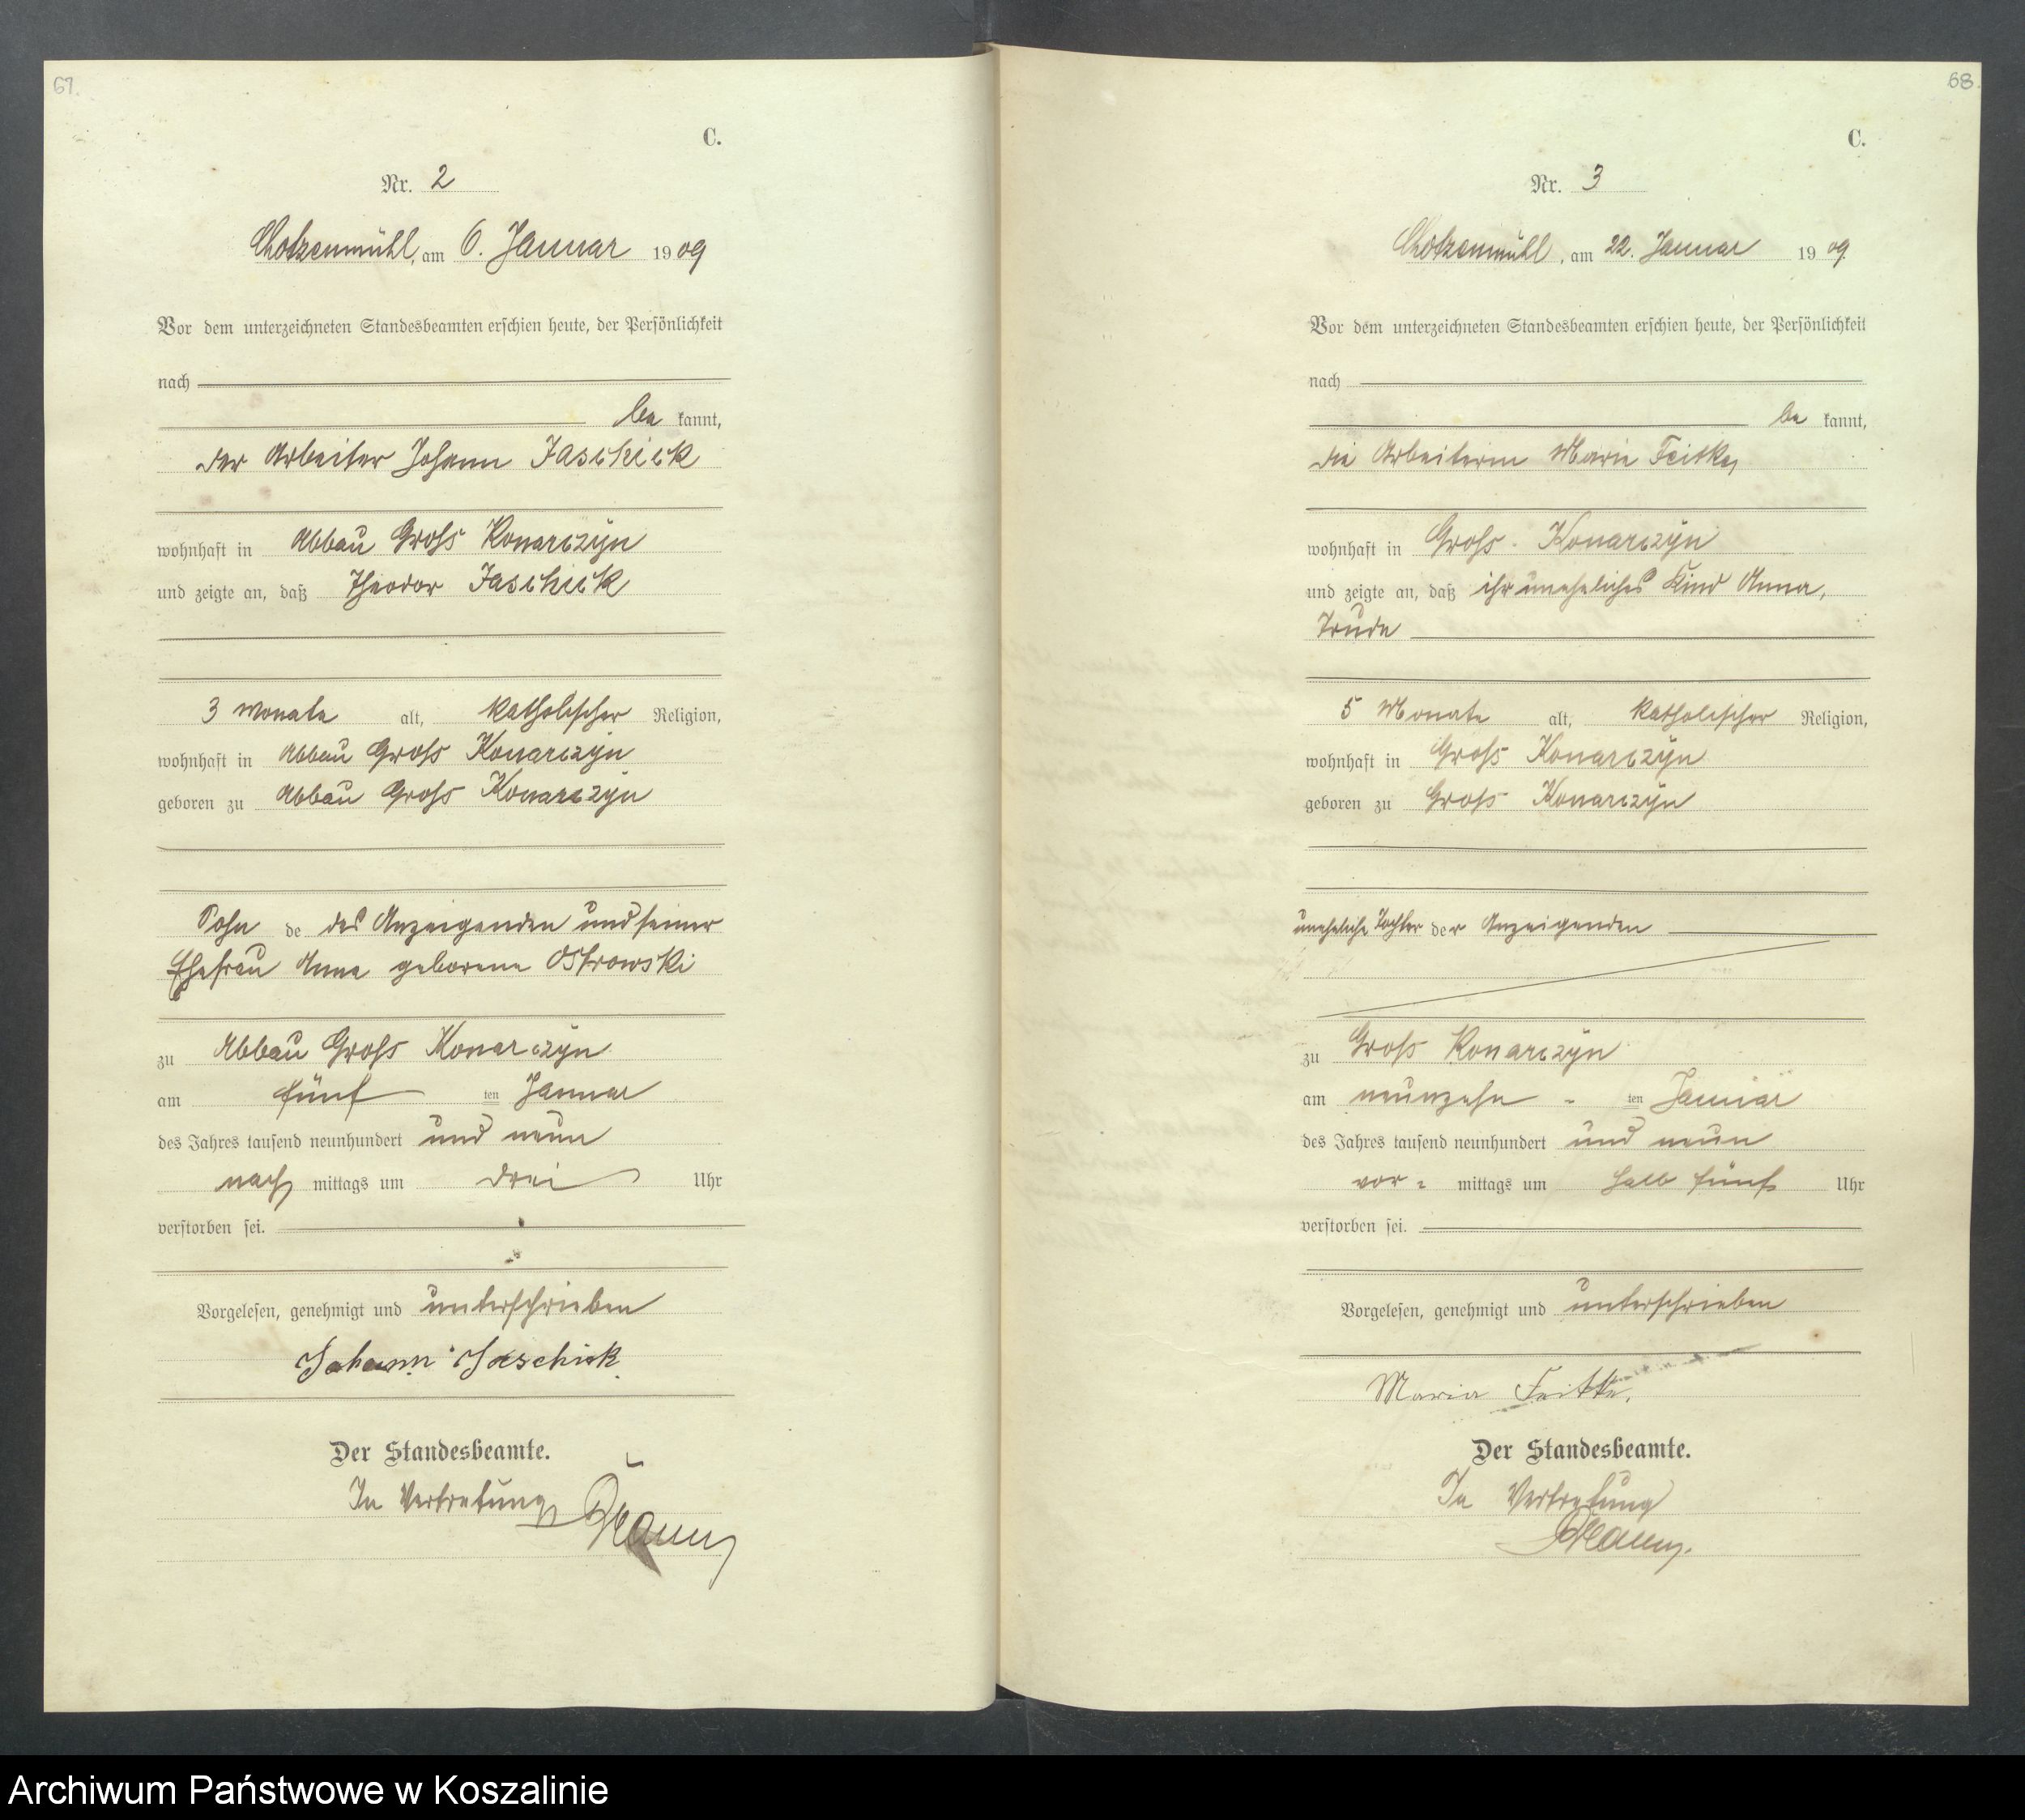 67.
C.
Nr. 2
Chotzenmühl, am 6. Januar 1909
Vor dem unterzeichneten Standesbeamten erschien heute, der Persönlichkeit
nach
be kannt,
der Arbeiter Johann Jaschick
wohnhaft in Abbau Groß Konarczyn
und zeigte an, daß Theodor Jaschick
3 Monate alt, katholischer Religion,
wohnhaft in Abbau Groß Konarczyn
geboren zu Abbau Groß Konarczyn
Sohn de des Anzeigenden und seiner
Ehefrau Anna geborene Ostrowski
zu Abbau Groß Konarczyn
am fünf ten Januar
des Jahres tausend neunhundert und neun
nach mittags um drei Uhr
verstorben sei.
Vorgelesen, genehmigt und unterschrieben
Johann Jaschick
Der Standesbeamte.
In Vertretung
68.
C.
Nr. 3
Chotzenmühl, am 22. Januar 1909.
Vor dem unterzeichneten Standesbeamten erschien heute, der Persönlichkeit
nach
be kannt,
die Arbeiterin Marie Feitke,
wohnhaft in Groß Konarczyn
und zeigte an, daß ihr uneheliches Kind Anna,
Trude
5 Monate alt, katholischer Religion,
wohnhaft in Groß Konarczyn
geboren zu Groß Konarczyn
uneheliche Tochter der Anzeigenden
zu Groß Konarczyn
am neunzehn ten Januar
des Jahres tausend neunhundert und neun
vor mittags um halb fünf Uhr
verstorben sei.
Vorgelesen, genehmigt und unterschrieben
Maria Feitke,
Der Standesbeamte.
In Vertretung
Archiwum Państwowe w Koszalinie